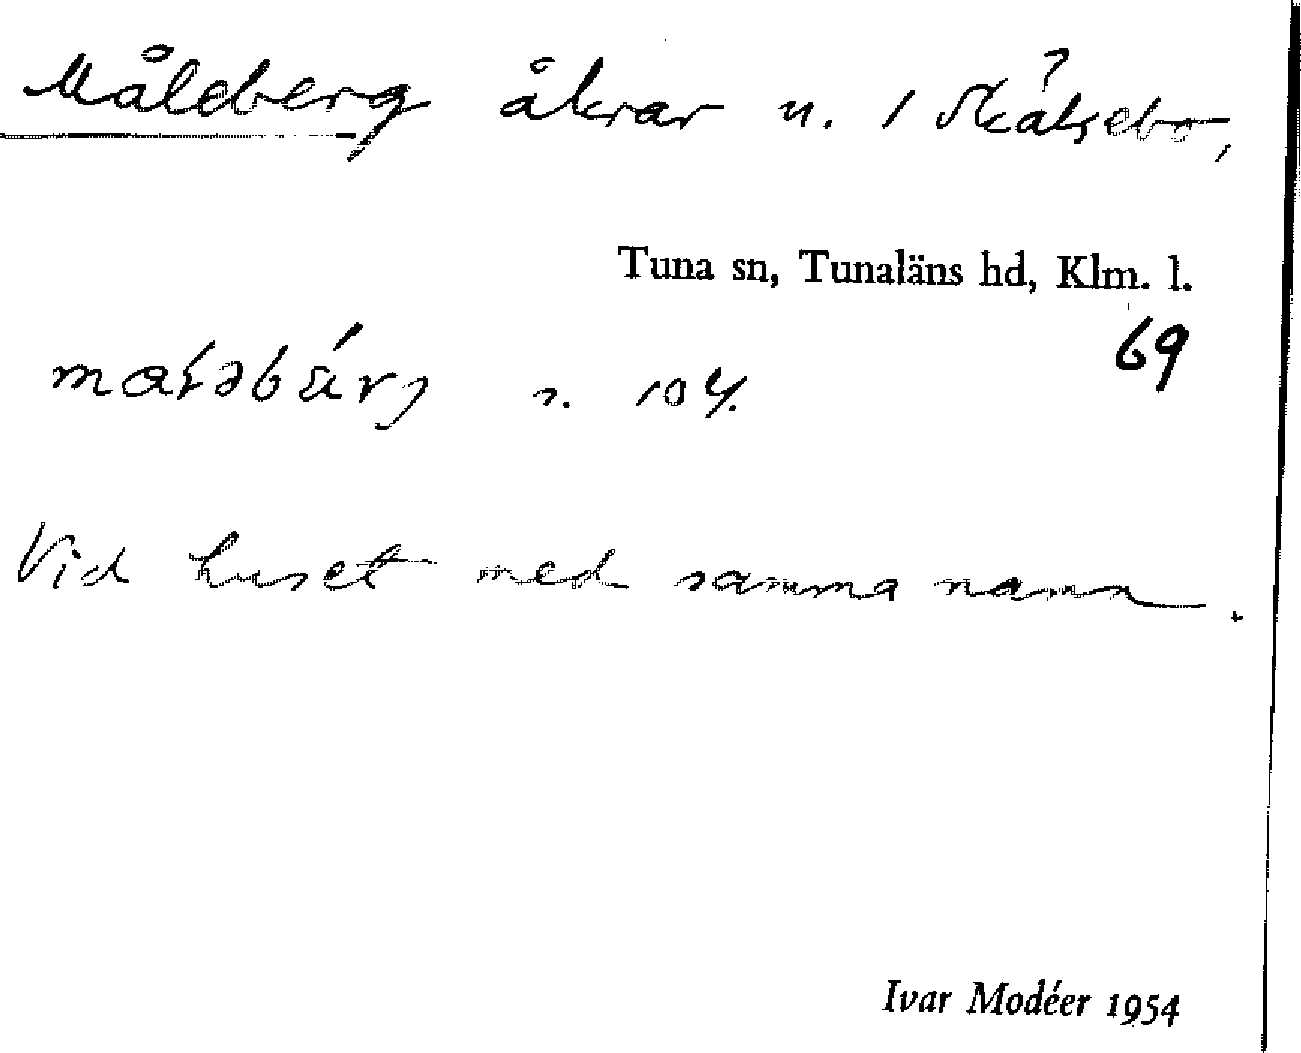 Måleberg åkrar n. 1 Skälsebo,
Tuna sn, Tunaläns hd, Klm. l.
69
n. 104.
Vid huset med samma namn.
Ivar Modéer 1954